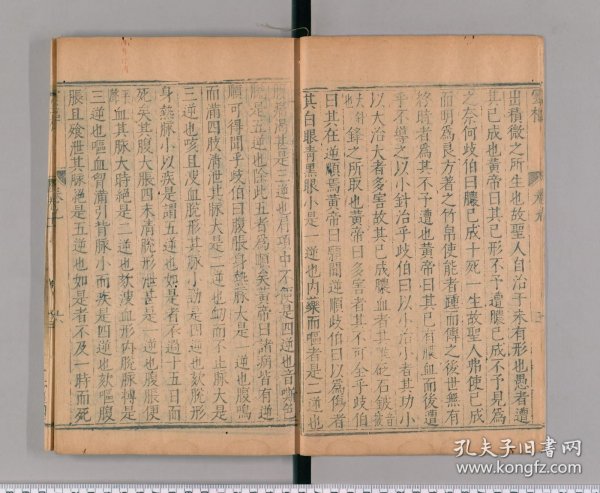 靈樞
卷九
出積微之所生也故聖人自治于未有形也愚者遭
其已成也黃帝曰其已形不予遭膿已成不予見爲
之奈何歧伯曰膿已成十死一生故聖人弗使已成
而明爲良方著之竹帛使能者踵而傳之後世無有
終時者爲其不予遭也黃帝曰其已有膿血而後遭
乎不導之以小針治乎歧伯曰以小治小者其功小
以大治大者多害故其已成膿血者其砭石鈹
鋒之所取也黃帝曰多害者其不可全乎歧伯
曰其在逆順焉黃帝曰願聞逆順歧伯曰以爲傷者
其白眼青黑眼小是一逆也內藥而嘔者是二逆也
渴甚是三逆也肩項中不便是四逆也音嘶色
脫是五逆也除此五者爲順矣黃帝曰諸病皆有逆
順可得聞乎歧伯曰腹脹身熱脉大是一逆也腹鳴
而滿四肢清泄其脉大是二逆也衄而不止脉大是
三逆也咳且溲血脫形其脉小勁是四逆也欬脫形
身熱脉小以疾是謂五逆也如是者不過十五日而
死矣其腹大脹四末清脫形泄甚是一逆也腹脹便
血其脉大時絕是二逆也欬溲血形肉脫脉搏是
三逆也嘔血胷滿引背脉小而疾是四逆也欬嘔腹
脹且飱泄其脉絕是五逆也如是者不及一時而死
孔夫子旧書网
www.kongfz.com